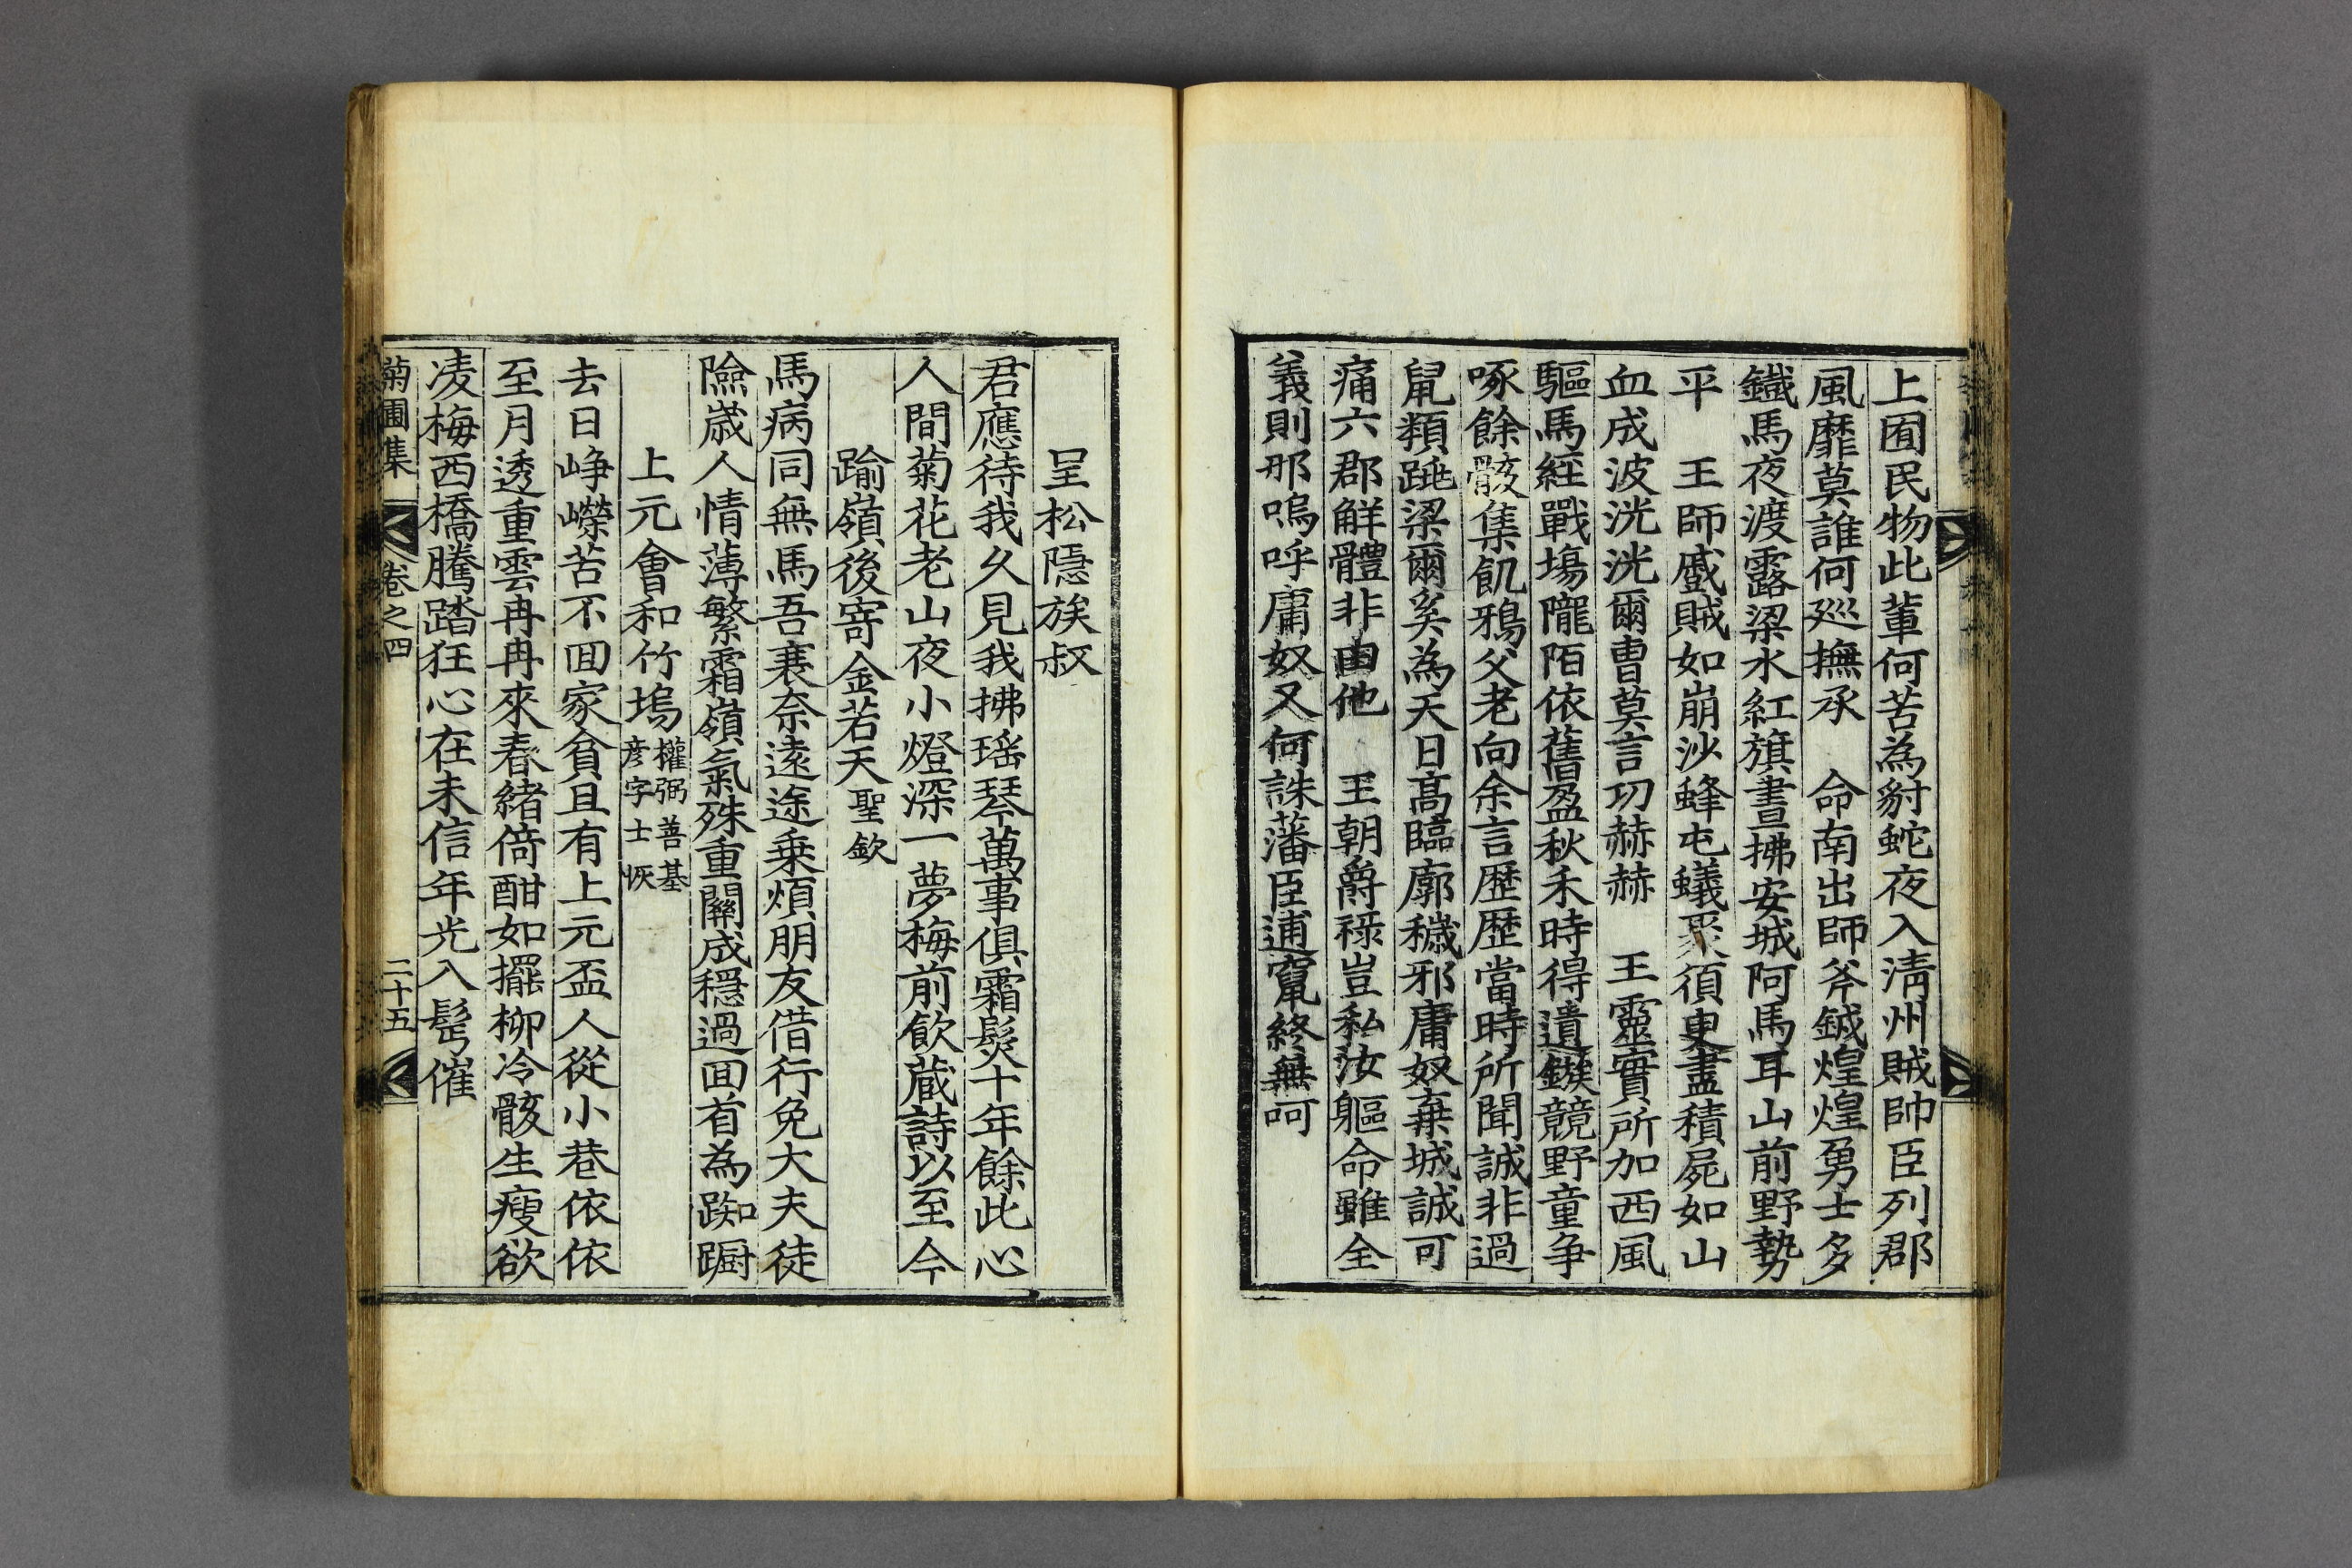 上囿民物此輩何苦為豺蛇夜入淸州賊帥臣列郡
風靡莫誰何廵撫承　命南出師斧鉞煌煌勇士多
鐵馬夜渡露梁水紅旗晝拂安城阿馬耳山前野勢
平　王師戲賊如崩沙蜂屯蟻聚須臾盡積屍如山
血成波洸洸爾曺莫言功赫赫　王靈實所加西風
驅馬経戰塲隴陌依舊盈秋禾時得遺鏃競野童争
啄餘骸集飢鴉父老向余言歴歴當時所聞誠非過
䑕類跳梁爾奚為天日髙臨廓穢邪庸奴棄城誠可
痛六郡觧體非由他　王朝爵祿豈私汝軀命雖全
義則那嗚呼庸奴又何誅藩臣逋竄終無呵
呈松隱族叔
君應待我久見我拂瑶琴萬事俱霜髮十年餘此心
人間菊花老山夜小燈深一夢梅前飮蔵詩以至今
踰嶺後寄金若天聖欽
馬病同無馬吾衰奈遠途乗煩朋友借行免大夫徒
險歳人情薄繁霜嶺氣殊重關成穩過囬首為踟躕
上元會和竹塢權弼善基
彦字士恢
去日崢嶸苦不囬家貧且有上元盃人從小巷依依
至月透重雲冉冉來春緒倚酣如擺柳冷骸生瘦欲
凌梅西橋騰踏狂心在未信年光入髩催
菊圃集　卷之四　二十五